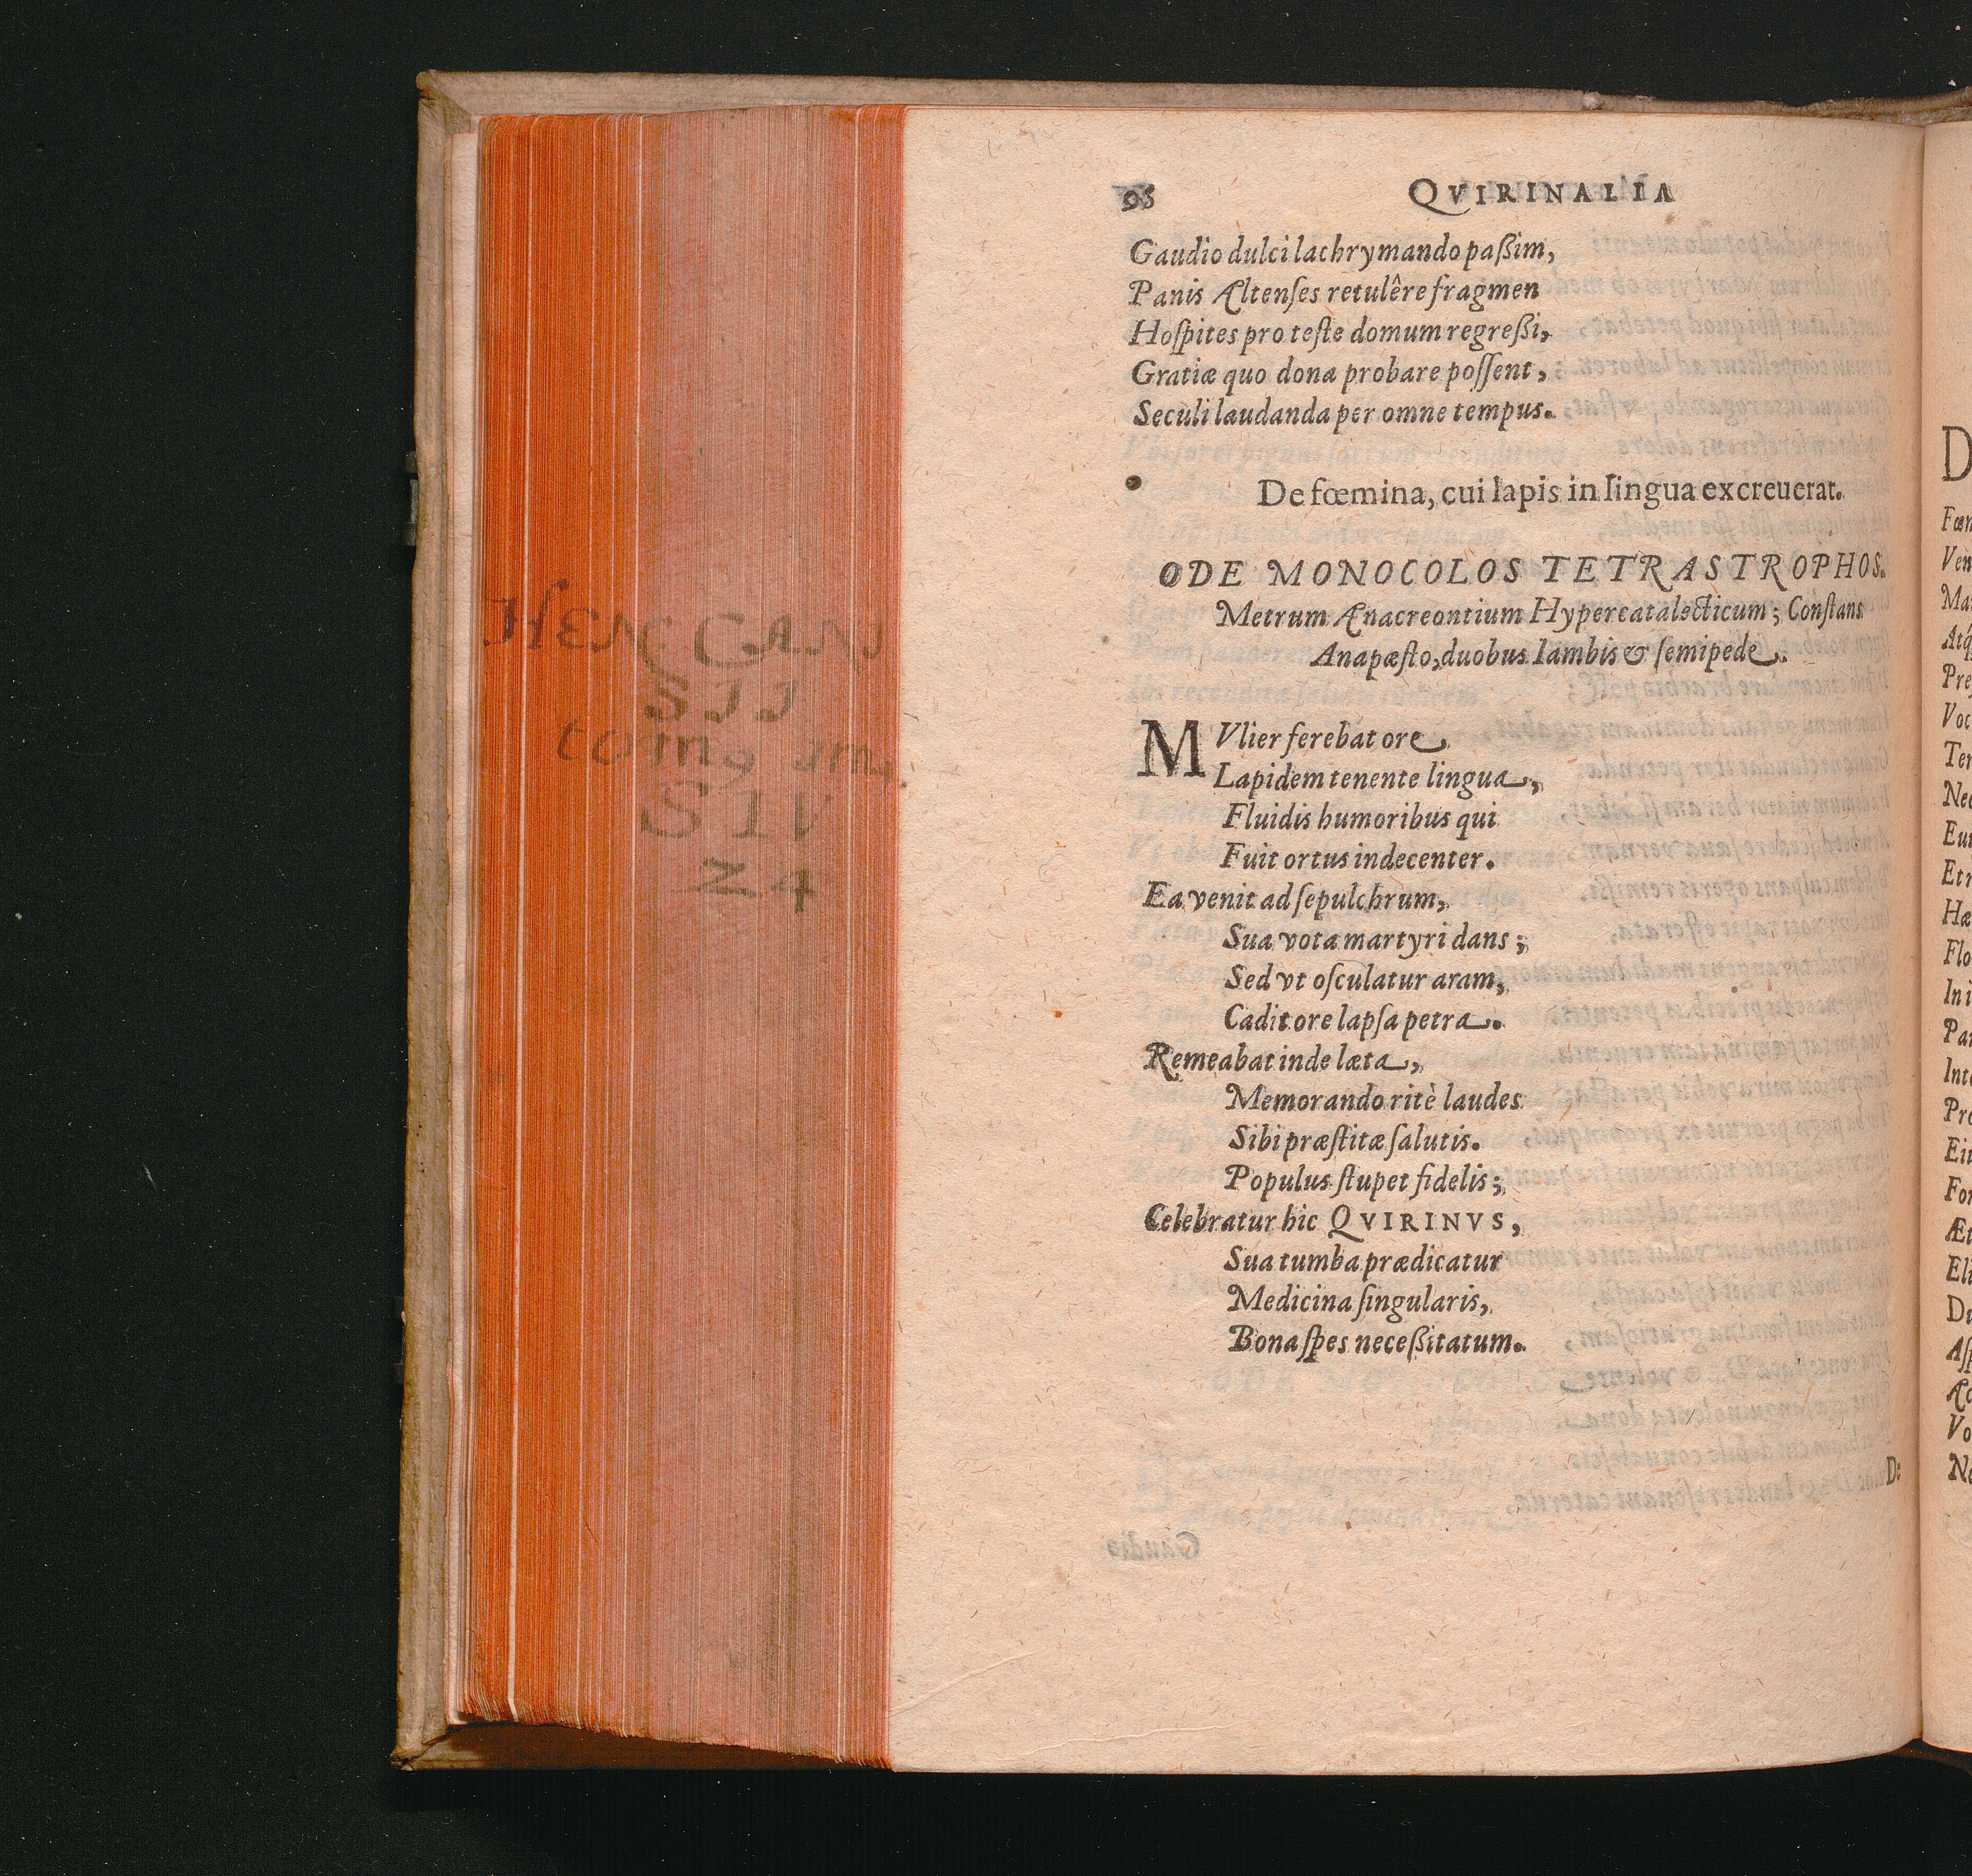 96 QVIRINALIA
Gaudio dulci lachrymando paßim,
Panis Æltenſes retulêre fragmen
Hoſpites pro teſte domum regreßi,
Gratiæ quo dona probare poſſent,
Seculi laudanda per omne tempus.
De fœmina, cui lapis in lingua excreuerat.
ODE MONOCOLOS TETRASTROPHOS.
Metrum Anacreontium Hypercatalecticum; Conſtans
Anapæſto, duobus Iambis & ſemipede.
MVlier ferebat ore
Lapidem tenente lingua,
Fluidis humoribus qui
Fuit ortus indecenter.
Ea venit ad ſepulchrum,
Sua vota martyri dans;
Sed vt oſculatur aram,
Cadit ore lapſa petra.
Remeabat inde læta,
Memorando ritè laudes
Sibi præſtitæ ſalutis.
Populus ſtupet fidelis;
Celebratur hic QVIRINVS,
Sua tumba prædicatur
Medicina ſingularis,
Bona ſpes neceßitatum.
De
D
Fœn
Ven
Atq
Preſ
Voc
Ter
Nec
Et
Hæ
Flo
In i
Par
Int
Pro
Ei
For
Æt
Eli
Du
Aſp
Vo
Ne